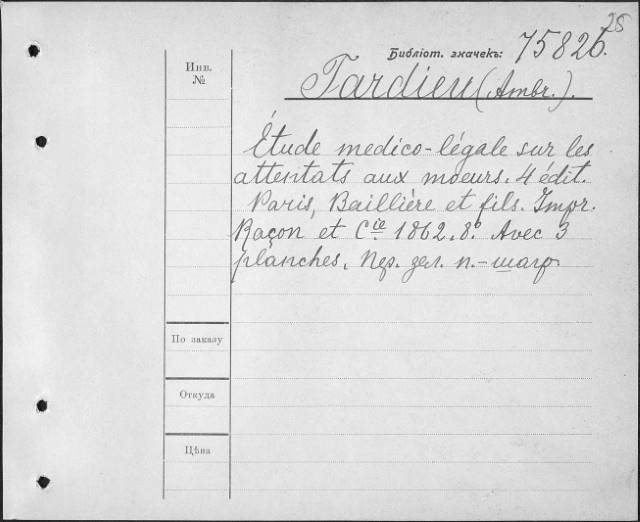 28
Библіот. значекъ: 75826.
Инв.
№
Tardieu (Ambr.).
Étude medico-légale sur les
attentats aux moeurs. 4 édit.
Paris, Baillière et fils. Impr.
Raçon et Cie 1862. 8º. Avec 3
planches. Пер. зел. п.-шагр
По заказу
Откуда
Цѣна